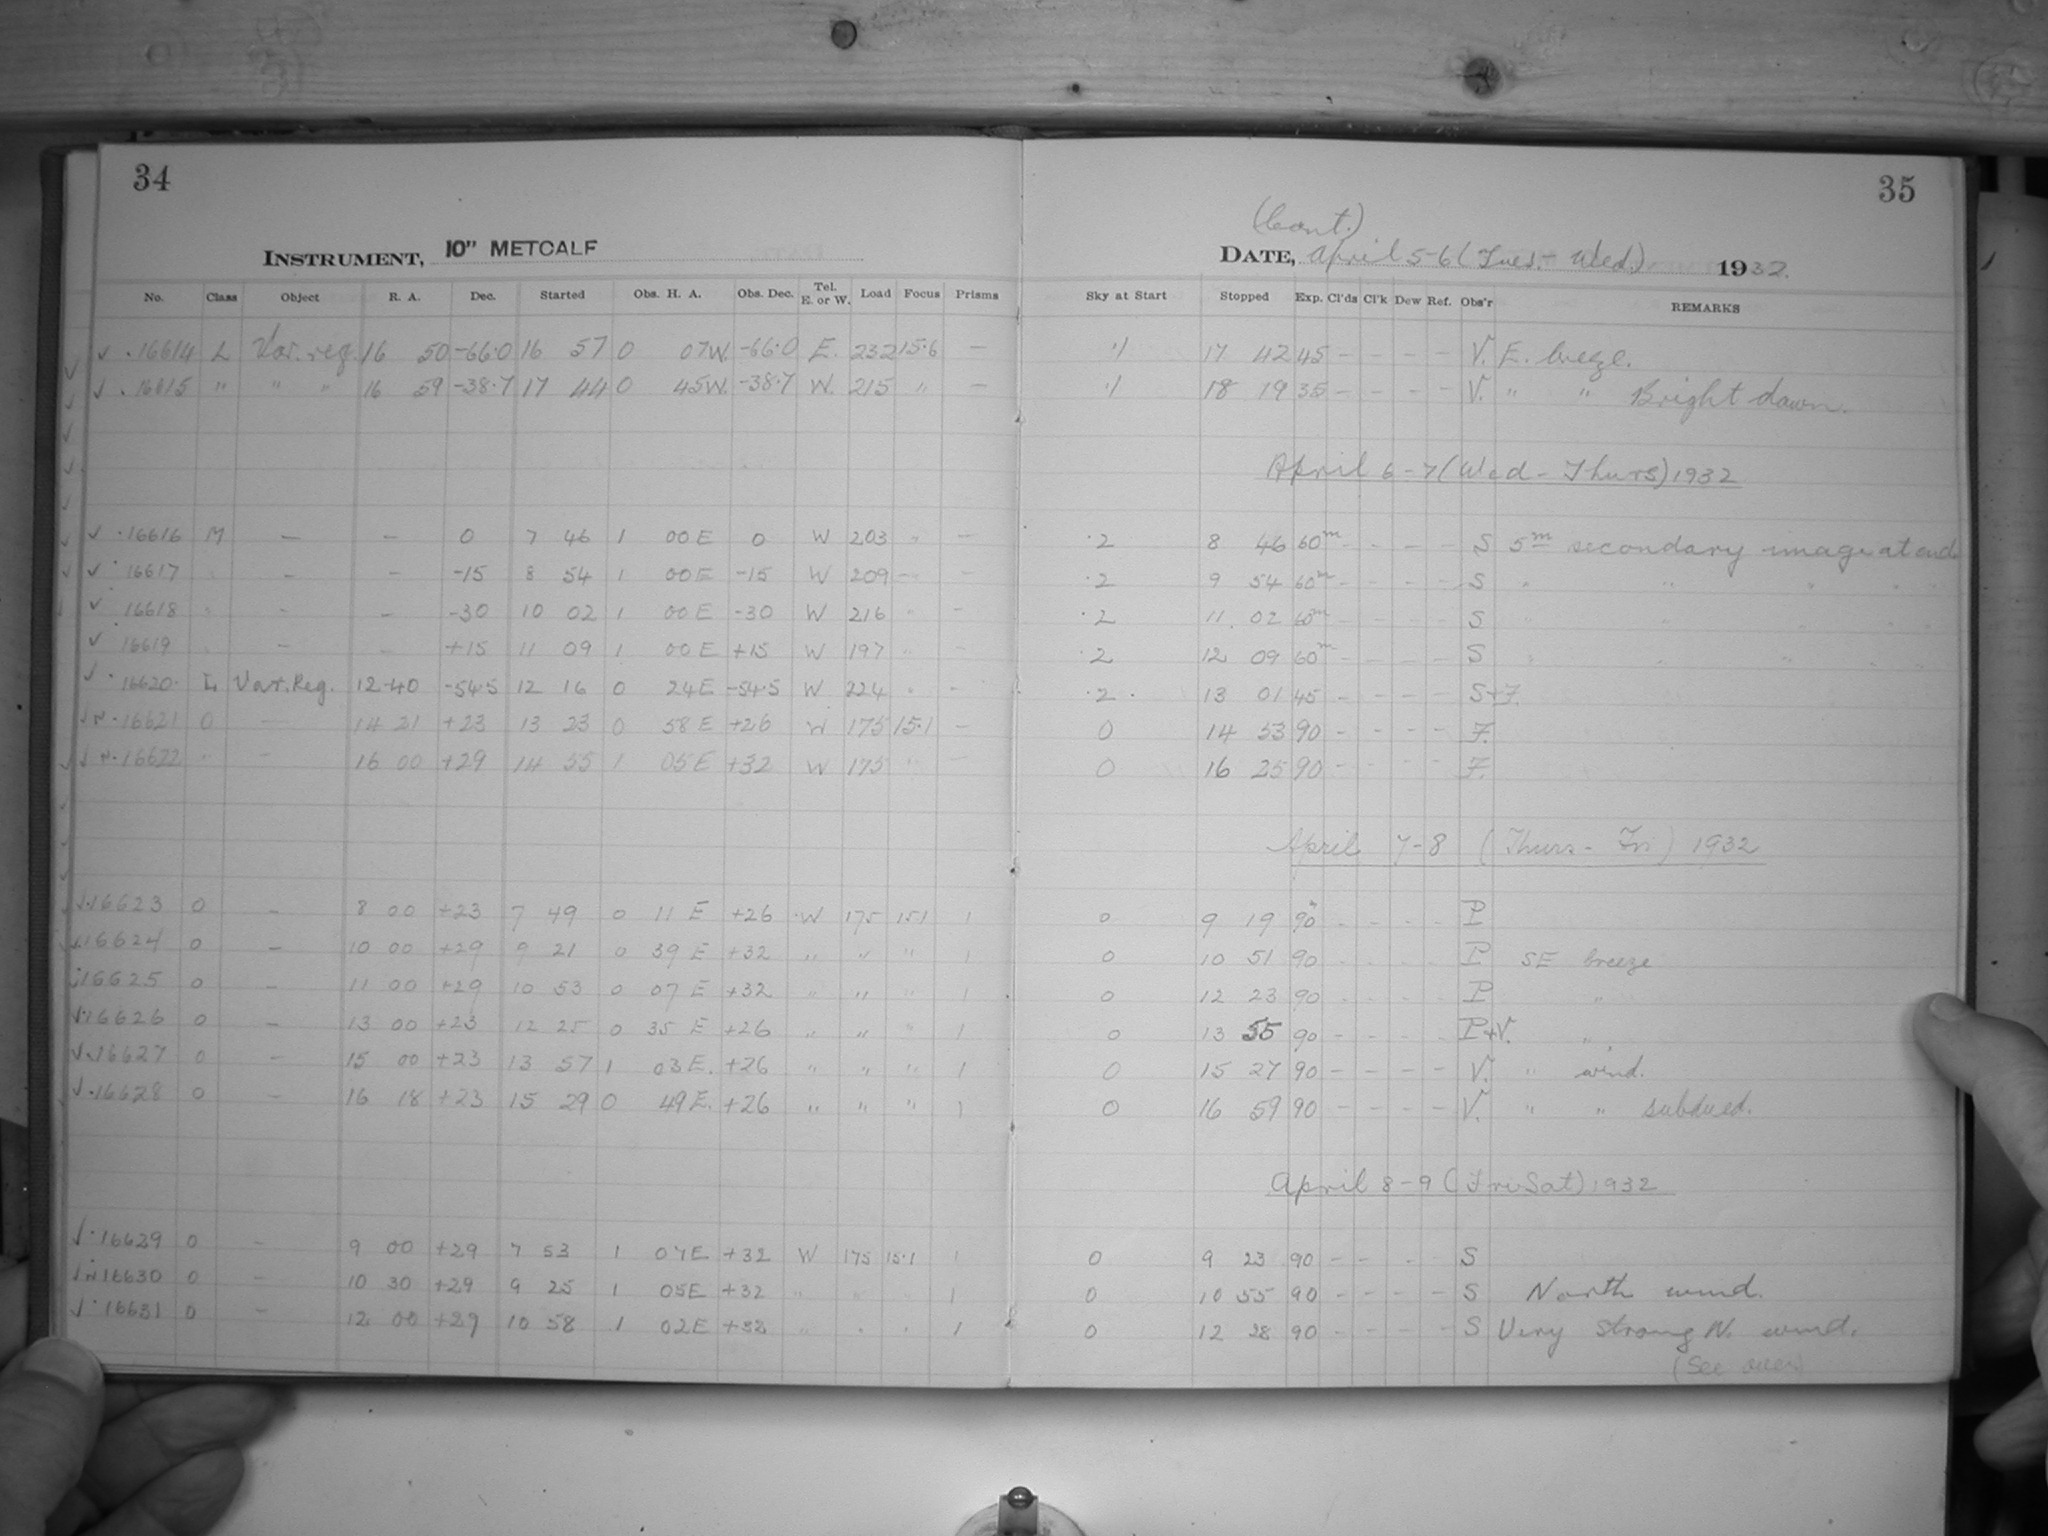 34
35
INSTRUMENT, 10" METCALF
(Cont.)
DATE, April 5-6 (Tues. - Wed.) 1932.
No. Class Object R. A. Dec. Started Obs. H. A. Obs. Dec. Tel. E. or W. Load Focus Prisms Sky at Start Stopped Exp. Cl'ds Cl'k Dew Ref. Obs'r REMARKS
√ . 16614 L Var. reg. 16 50 -66.0 16 57 0 07W. -66.0 E. 232 15.6 — 17 42 45 - - - - V. E. breeze.
√ . 16615 " " " 16 59 -38.7 17 44 0 45W. -38.7 W. 215 " — 18 19 35 - - - - V. " " Bright dawn.
April 6-7 (Wed - Thurs) 1932
√ . 16616 M — - 0 7 46 1 00 E 0 W 203 " — .2 8 46 60m - - - - S 5m secondary image at end
√ . 16617 " - - -15 8 54 1 00 E -15 W 209 — - .2 9 54 60m - - - - S " " " " "
√ . 16618 " - - -30 10 02 1 00 E -30 W 216 " - .2 11 02 60m - - - - S " " " " "
√ . 16619 " - - +15 11 09 1 00 E +15 W 197 " - .2 12 09 60m - - - - S " " " " "
√ . 16620 L Var. Reg. 12-40 -54.5 12 16 0 24E -54.5 W 224 " - .2 13 01 45 - - - - S+F.
√ N. 16621 O — 14 21 +23 13 23 0 58 E +26 W 175 15.1 — 0 14 53 90 - - - - F.
√ N. 16622 " - 16 00 +29 14 55 1 05 E +32 W 175 " 0 16 25 90 - - - - F.
April 7-8 (Thurs - Fri) 1932
√ . 16623 O - 8 00 +23 7 49 0 11 E +26 W 175 151 1 0 9 19 90 - - - - P
√ . 16624 O - 10 00 +29 9 21 0 39 E +32 " " " 1 0 10 51 90 - - - - P SE breeze
√ . 16625 O - 11 00 +29 10 53 0 07 E +32 " " " 1 0 12 23 90 - - - - P "
√ . 16626 O - 13 00 +23 12 25 0 35 E +26 " " " 1 0 13 55 90 - - - - P+V. "
√ . 16627 O - 15 00 +23 13 57 1 03 E. +26 " " " 1 0 15 27 90 - - - - V. " wind.
√ . 16628 O - 16 18 +23 15 29 0 49 E. +26 " " " 1 0 16 59 90 - - - - V. " " subdued.
April 8-9 (Fri-Sat) 1932
√ . 16629 O - 9 00 +29 7 53 1 07E +32 W 175 15.1 1 0 9 23 90 - - - S
√ N 16630 O - 10 30 +29 9 25 1 05E +32 " " 1 0 10 55 90 - - - - S North wind.
√ . 16631 O - 12 00 +29 10 58 1 02E +32 " " " 1 0 12 28 90 - - - - S Very strong N. wind.
(See over)